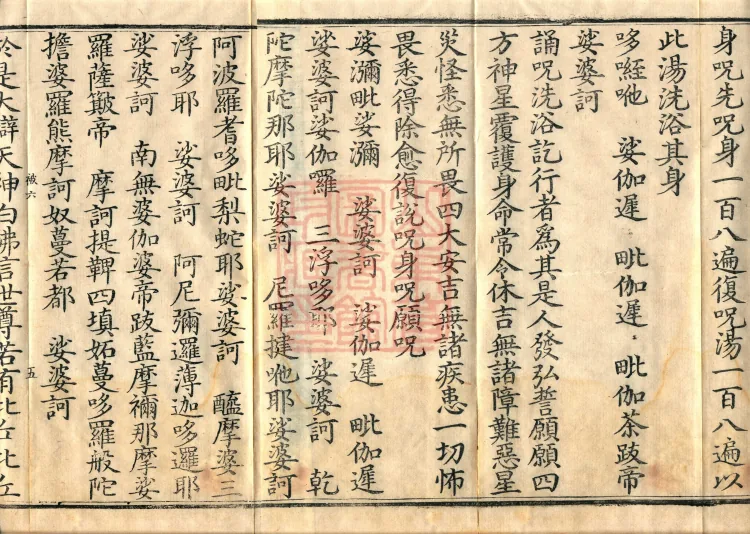 身呪先呪身一百八遍復呪湯一百八遍以
此湯洗浴其身
哆經咃　娑伽遲　毗伽遲　毗伽荼跋帝
娑婆訶
誦呪洗浴訖行者爲其是人發弘誓願願四
方神星覆護身命常令休吉無諸障難惡星
災怪悉無所畏四大安吉無諸疾患一切怖
畏悉得除愈復說呪身呪願呪
娑瀰毗娑瀰　娑婆訶　娑伽遲　毗伽遲
娑婆訶娑伽羅　三浮哆耶　娑婆訶　乾
陀摩陀那耶娑婆訶　尼羅揵咃耶娑婆訶
阿波羅耆哆毗梨蛇耶娑婆訶　醯摩婆三
浮哆耶　娑婆訶　阿尼彌羅薄迦哆邏耶
娑婆訶　南無婆伽婆帝跋藍摩禰那摩娑
羅薩簸帝　摩訶提鞞四填妬蔓哆羅般陀
擔婆羅熊摩訶奴蔓若都　娑婆訶
被六　五
於是大辯天神白佛言世尊若有比丘比丘